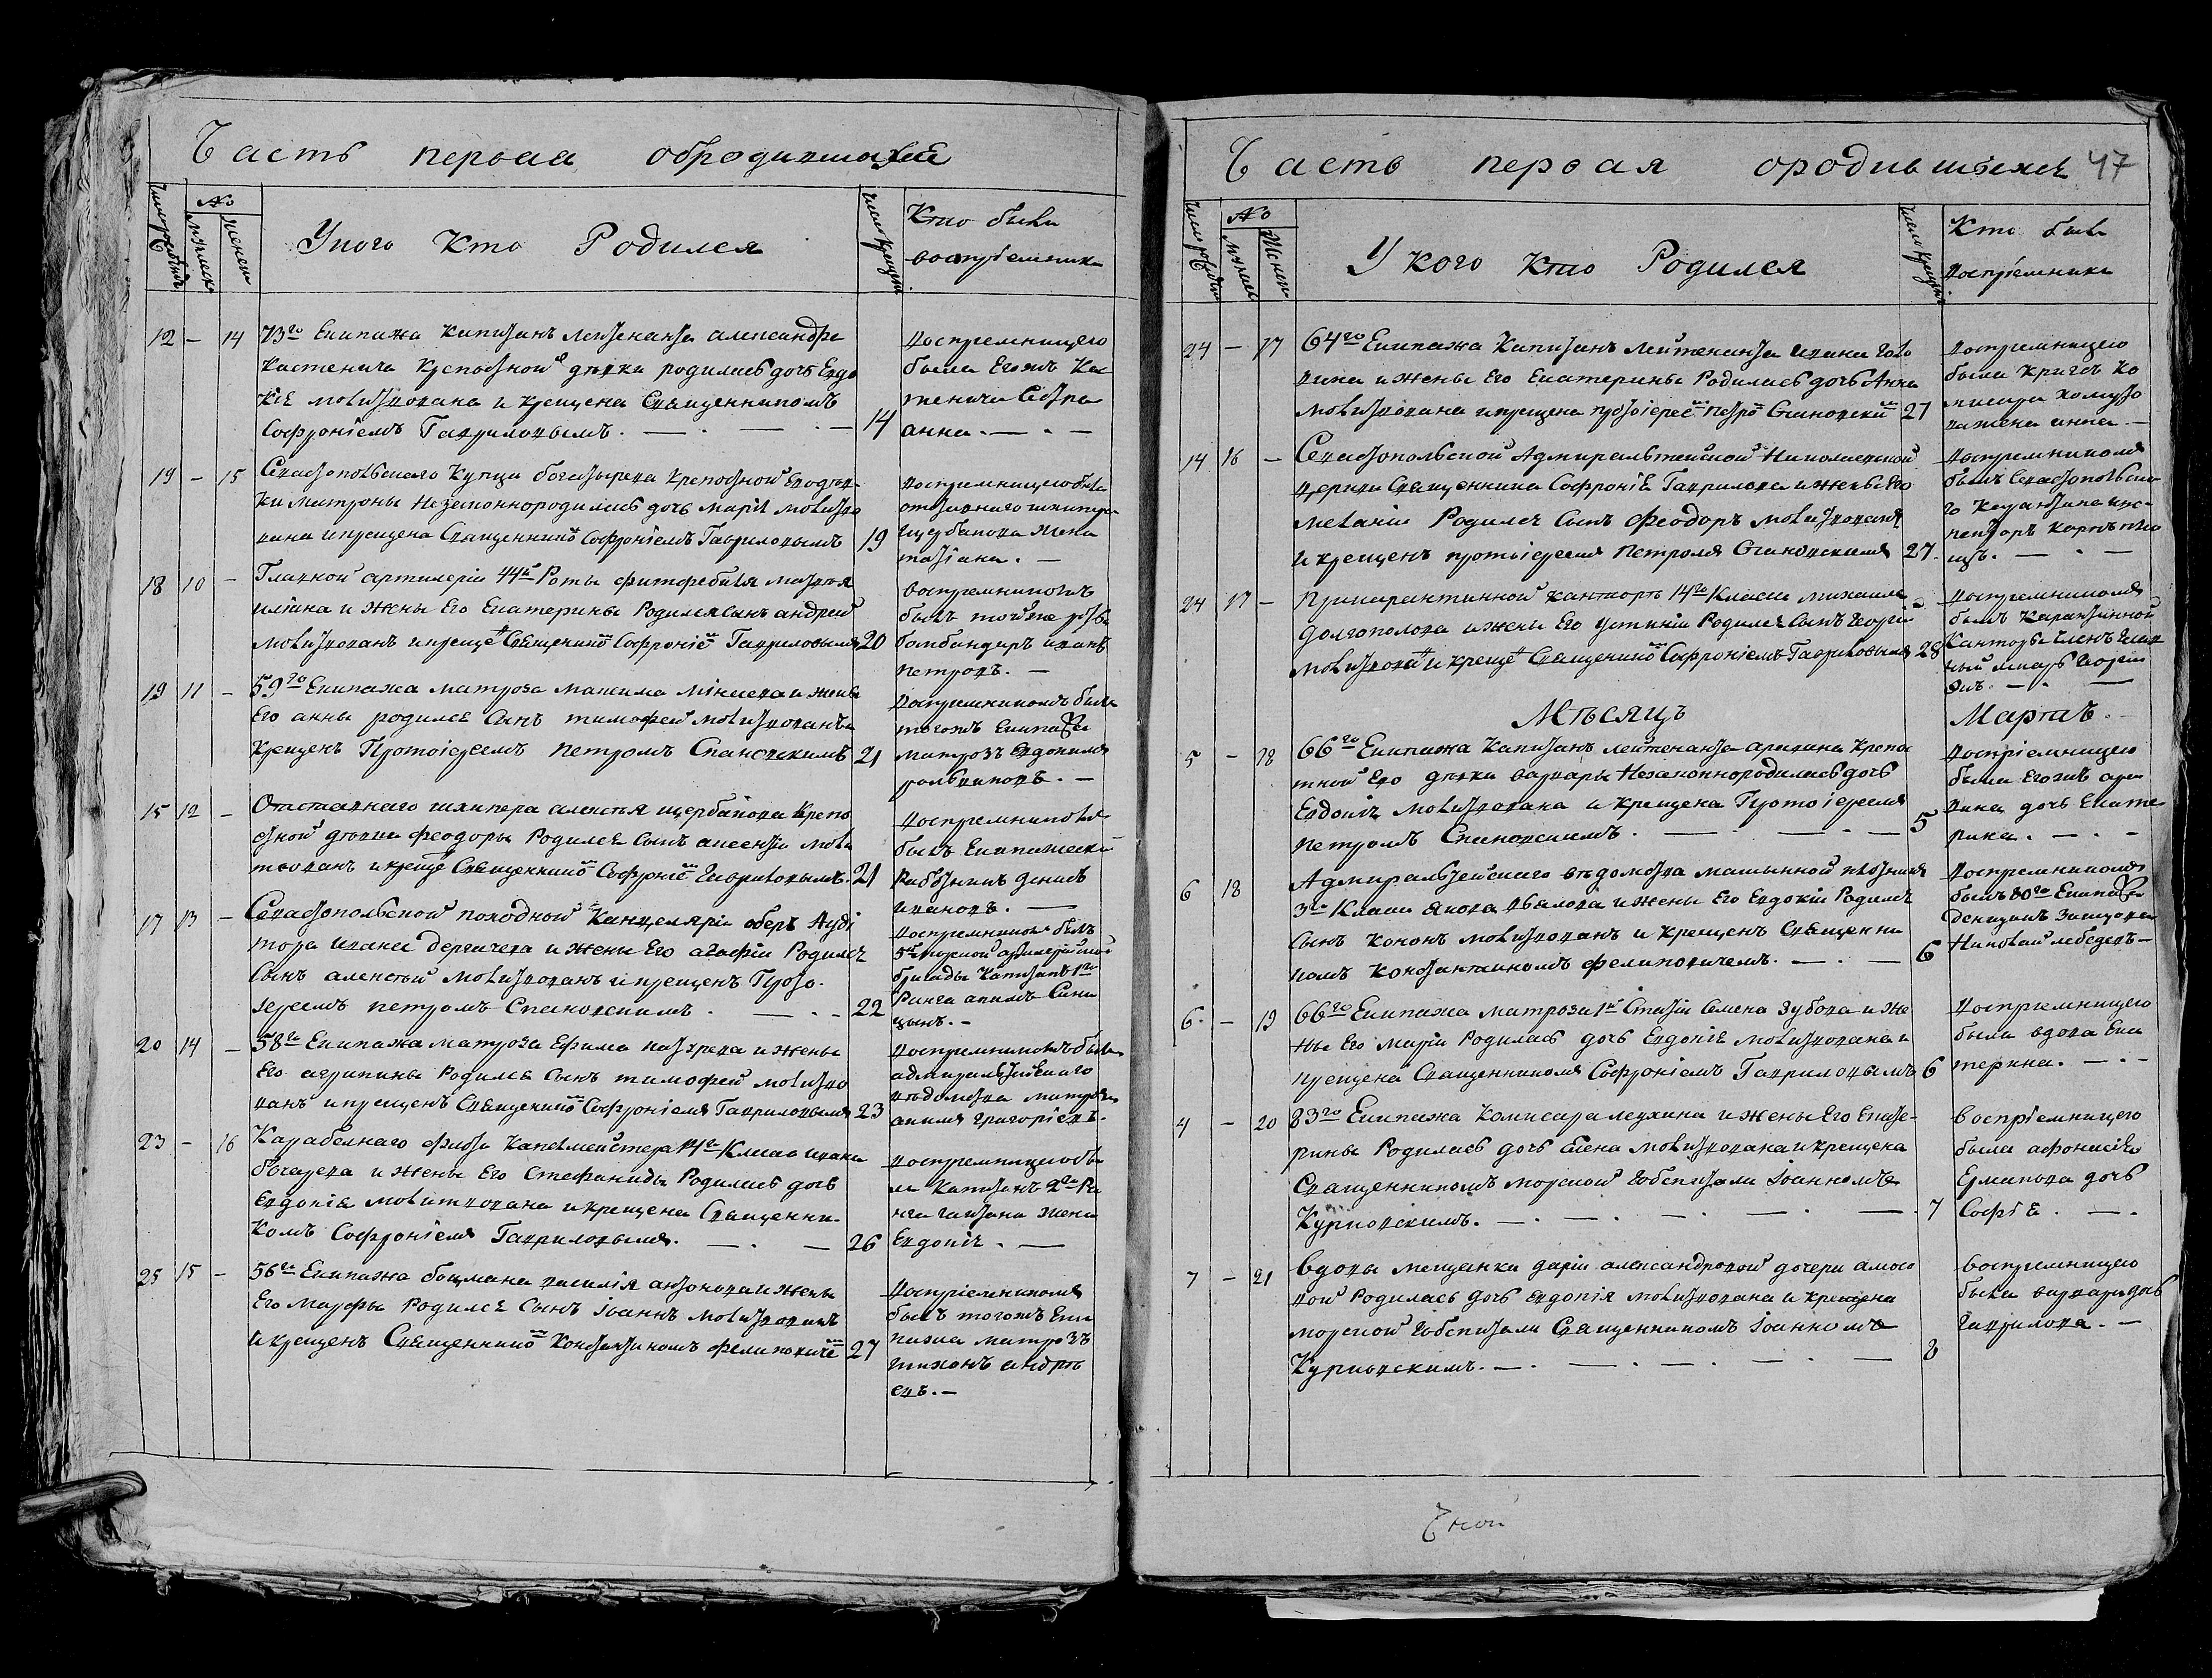 Часть первая обродившихсе
Число рожденія
№
Мужеск
Женск
У кого Кто Родилса
Число крещенія
Кто были
восприемники
12 — 14 73го Екипажа Капитанъ Лейтенанта александра
Кастенича Крепостной девки родилась дочь Евдо
кіе молитвована и крещена Священникомъ
Софроніемъ Гавриловымъ. — . — . — 14
восприемницею
была Егожъ Кас
тенича Сестра
анна. — . —
19 — 15 Севастопольскаго Купца богатырева крепостной Его дев
ки Матроны Незаконнородилась дочь Марія молитво
вана и крещена Священнико Софроніемъ Гавриловымъ 19
восприемницею была
отставнаго шхипера
щербакова жена
татіана. —
18 10 — Главной артилеріи 44й Роты фитфербеля матвея
илина и жены Его Екатерины Родился сынъ андрей
молитвованъ и креще Священнико Софроніе Гавриловымъ 20
восприемникомъ
былъ тойже роты
бомбандиръ иванъ
петровъ. —
19 11 — 59го Екипажа матроза максима мінеева и жены
Его анны родилсе Сынъ тимофей молитвованъ и
крещенъ Протоіереемъ петромъ Спановскимъ 21
восприемникомъ былъ
тогожъ Екипажа
матрозъ Евдокимъ
15 12 — Отставнаго шхипера алексея щербакова крепо
стной девки феодоры Родилсе Сынъ алексей моли
твованъ и креще Священнико Софроніе Гавриловымъ. 21
восприемникомъ
былъ Екипажеский
Работникъ денисъ
ивановъ. —
17 13 — Севастопольской походной Канцеляріи оберъ Ауди
тора ивана дергачева и жены Его агафіи Родилсе
Сынъ алексей молитвованъ и крещенъ Прото
іереемъ петромъ Спановскимъ. — . — 22
восприемникомъ былъ
5й морской артилерійской
бригады Капитанъ 1го
Ранга акимъ Сини
цынъ. —
20 14 — 58го Екипажа матроза Ефима назарева и жены
Его агрипины Родилсе Сынъ тимофей молитво
ванъ и крещенъ Священнико Софроніемъ Гавриловымъ 23
восприемникомъ былъ
адмиралтейскаго
ведомства матрозъ
акимъ григоріевъ.
23 — 16 Карабелнаго флота Капельмейстера 14го Класса ивана
бочарева и жены Его Стефаниды Родилась дочь
Евдокіе молитвована и крещена Священни
комъ Софроніемъ Гавриловымъ. — . — 26
восприемницею бы
ла Капитанъ 2го Ра
нга гайтана жена
Евдокіе. —
25 15 — 56го Екипажа боцмана василія антонова и жены
Его Марфы Родилсе Сынъ іоаннъ молитвованъ
и крещенъ Священнико Константиномъ фелиповиче 27
восприемникомъ
былъ тогожъ Еки
пажа матрозъ
тихонъ андре
евъ. —
Часть первая ородившихсе 47
Число рожденія
№
Мужеск
Женск
У кого Кто Родилса
Число крещенія
Кто были
восприемники
24 — 17 64го Екипажа Капитанъ Лейтенанта ивана Голо
вина и жены Его Екатерины Родилась дочь Анна
молитвована и крещена протоіерее Петро Спановски 27
восприемницею
была Кригсъ Ко
мисара
жена анна. —
14 16 — Севастопольской Адмиральтейской Николаевской
церкви Священника Софроніе Гаврилова и жены Его
мелании Родилсе Сынъ феодоръ молитвованъ
и крещенъ протоіереемъ Петромъ Спановскимъ 27.
восприемникомъ
былъ Севастопольска
го Карантина инс
пекторъ
24 17 — При карантинной канторѣ 14го Класса михаила
долгополова и жены Его устиніи Родилсе Сынъ георги
молитвова и креще Священнико Софроніемъ Гавриловымъ 28
восприемникомъ
былъ Карантинной
Канторы членъ
Мѣсяцъ Мартъ.
5 — 18 66го Екипажа Капитанъ лейтенанта аркина крепо
стной Его девки варвары Незаконнородилась дочь
Евдокіе молитвована и крещена Протоіереемъ
петромъ Спановскимъ. — . — . — 5
воспріемницею
была Егожъ арк
ина дочь Екате
рина. — . —
6 18 Адмиралтейскаго ведомства машинной плотника
3го Класса якова и жены Его Евдокіи Родилсе
Сынъ Кононъ молитвованъ и крещенъ Священни
комъ Константиномъ фелиповичемъ. — . — 6
восприемникомъ
былъ 30го Екипажа
Николай лебедевъ —
6 — 19 66го Екипажа матроза 1й Статіи Семена Зубова и же
ны Его Маріи Родилась дочь Евдокіе молитвована и
крещена Священникомъ Софроніемъ Гавриловымъ 6
восприемницею
была вдова Ека
терина. — . —
4 — 20 83го Екипажа Комисара леухина и жены Его Екате-
рины Родилась дочь Елена молитвована и крещена
Священникомъ морской Гобспитали Іоанномъ
Курповскимъ. — . — . — . — 7
воспріемницею
была афонасіе
Ермакова дочь
Софіе. — .
7 — 21 вдовы мещанки даріи александровой дочери амосо
вой Родилась дочь Евдокія молитвована и крещена
морской Гобспитали Священникомъ Іоанномъ
Курповскимъ. — . — . — . — 8
воспріемницею
была варвара дочь
гаврилова. —